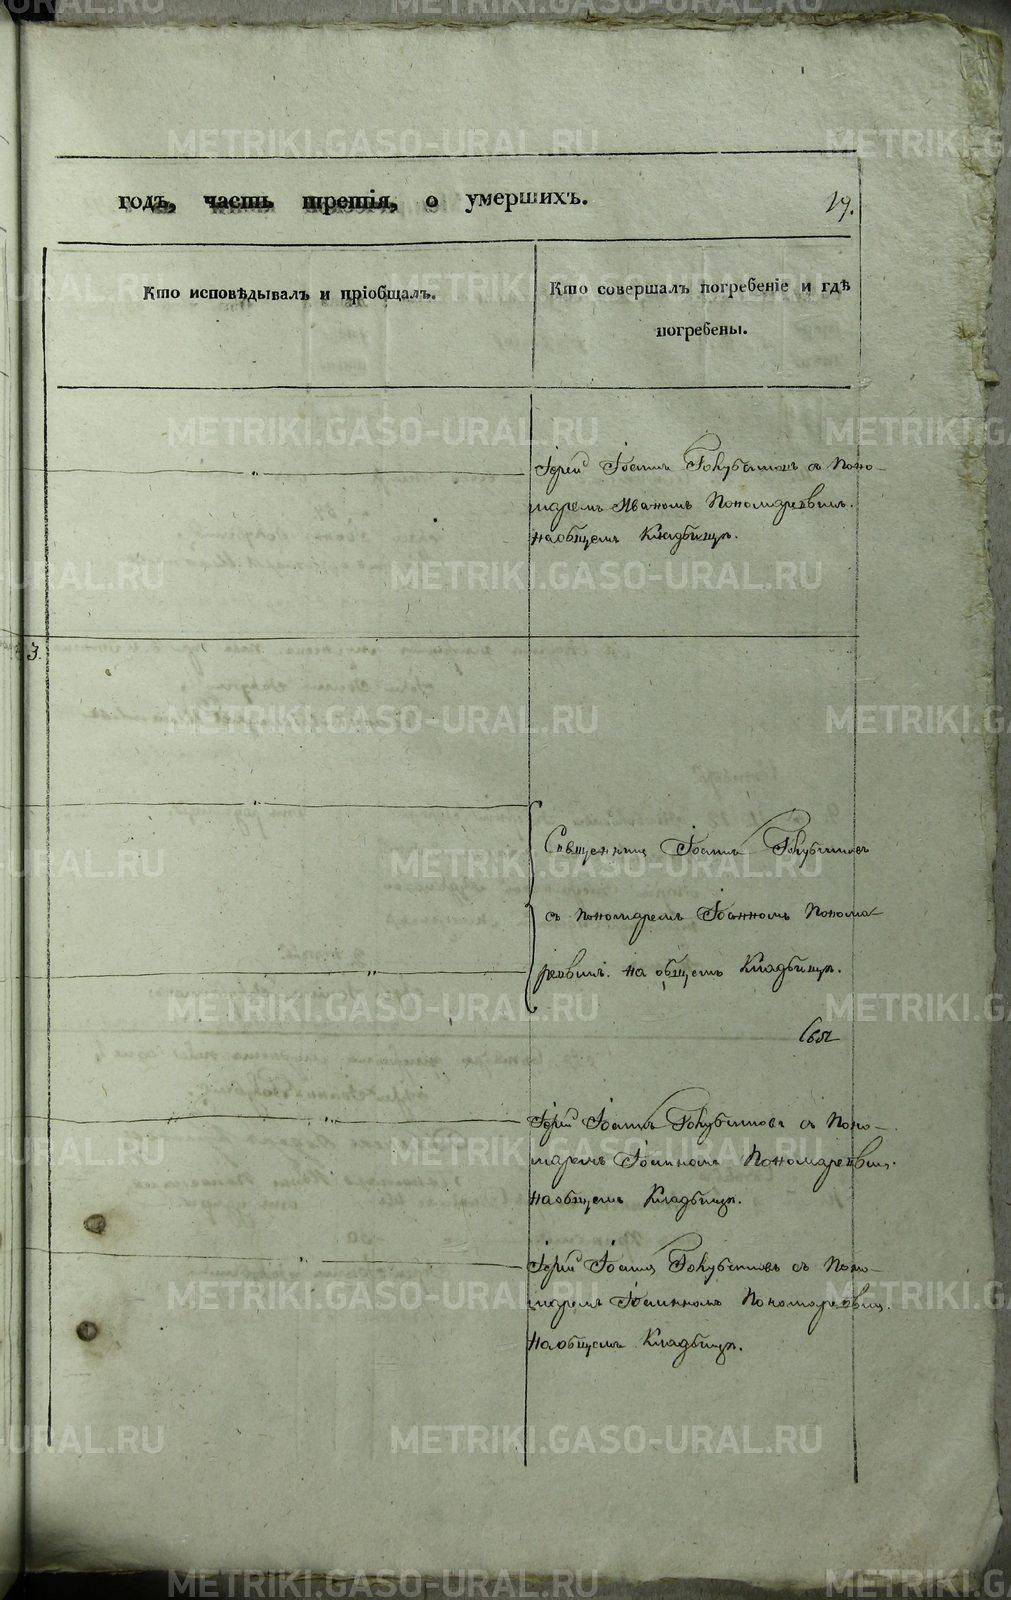 годъ, часть третія, о умершихъ.
19.
Кто исповѣдывалъ и пріобщалъ.
Кто совершалъ погребеніе и гдѣ
погребены.
Іерей Іоаннъ Голубятниковъ съ Поно-
маремъ Иваномъ Пономаревымъ.
на общемъ Кладбищѣ.
3.
Священникъ Іоаннъ
съ пономаремъ Іоанномъ Понома
ревымъ. на общемъ Кладбищѣ.
Іерей Іоаннъ съ Поно-
маремъ Іоанномъ Пономаревымъ.
на общемъ Кладбищѣ.
Іерей Іоаннъ съ Поно-
маремъ Іоанномъ Пономаревымъ.
на общемъ Кладбищѣ.
METRIKI.GASO-URAL.RU